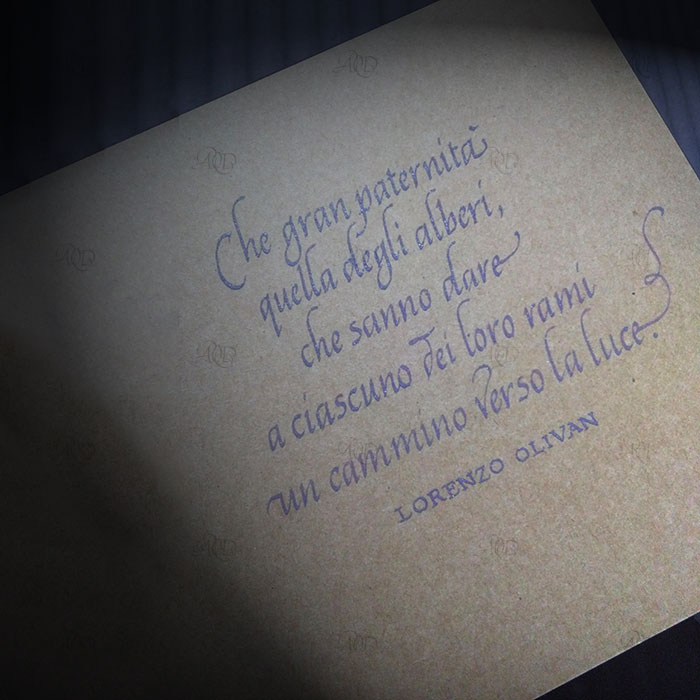 Che gran paternità
quella degli alberi,
che sanno dare
a ciascuno dei loro rami
un cammino verso la luce.
LORENZO OLIVAN